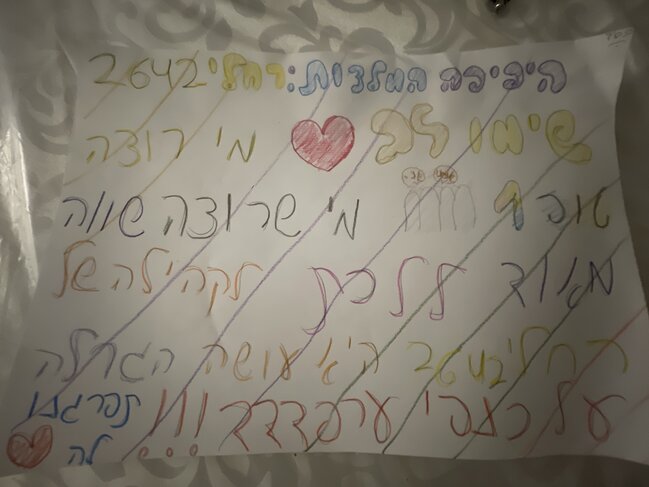 בס"ד
המלדות:רחלי2642
שימו לב מי רוצה
טופ 1 מי שרוצה שווה
מאוד ללכת לקהילה של
רחלי2642 היא עושה הגרלה
על כנפי ערפדדד!!! תפרגנו
לה